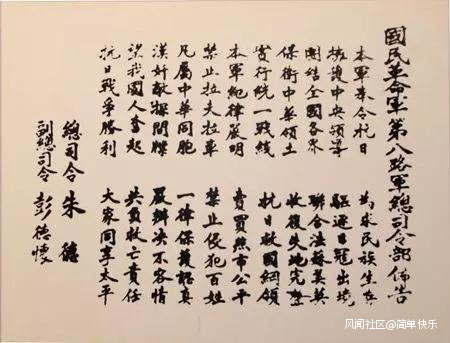 國民革命軍第八路軍總司令部佈告
本軍奉令抗日 為求民族生存
擁護中央領導 驅逐日寇出境
團結全國各界 聯合法蘇英美
保衛中華領土 收復失地完整
實行統一戰线 抗日救國綱領
本軍紀律嚴明 賣買照市公平
禁止拉夫拉車 禁止侵犯百姓
凡屬中華同胞 一律保護認真
漢奸敵探間諜 嚴辦決不容情
望我國人奮起 共負救亡責任
抗日戰爭勝利 大家同享太平
總司令 朱德
副總司令 彭德懷
风闻社区/@简单快乐